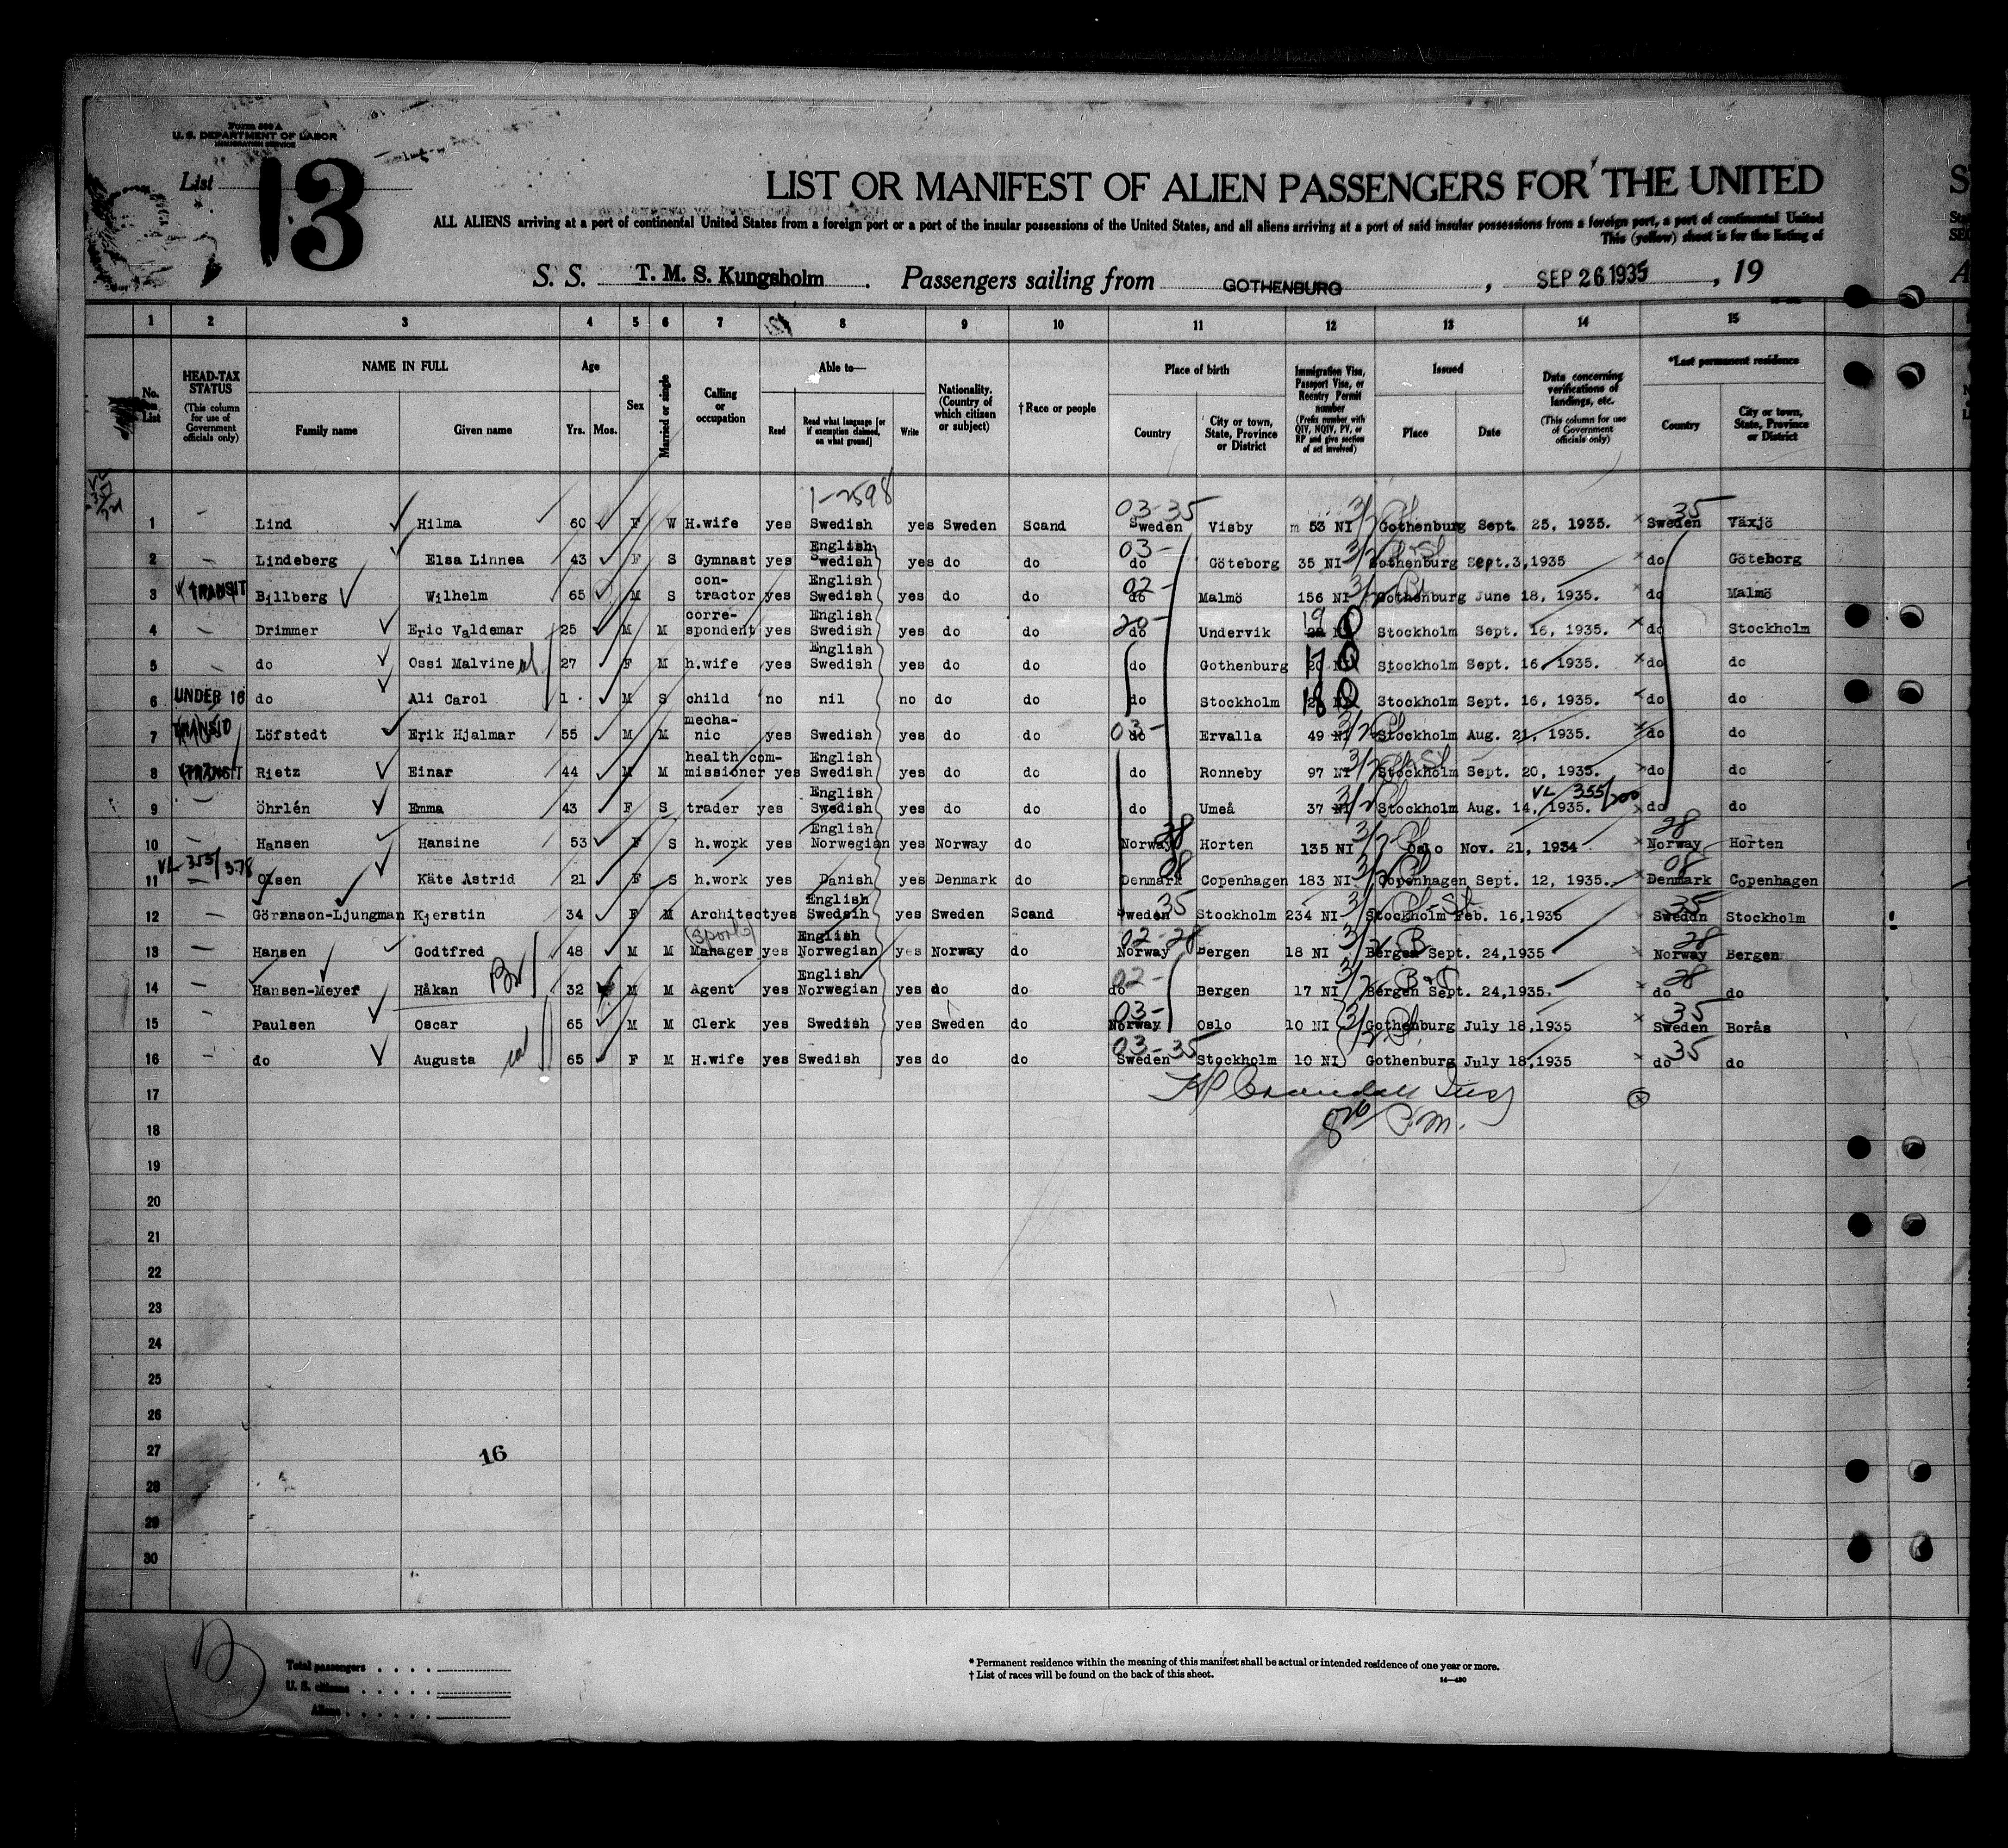 Form 500 A
U. S. DEPARTMENT OF LABOR
IMMIGRATION SERVICE
List 13
LIST OR MANIFEST OF ALIEN PASSENGERS FOR THE UNITED
ALL ALIENS arriving at a port of continental United States from a foreign port or a port of the insular possessions of the United States, and all aliens arriving at a port of said insular possessions from a foreign port, a part of continental United
This (yellow) sheet is for the listing of
S. S. T. M. S. Kungsholm . Passengers sailing from GOTHENBURG , SEP 26 1935 , 19
1 2 3 4 5 6 7 8 9 10 11 12 13 14 15
No. on List
HEAD-TAX STATUS (This column for use of Government officials only)
NAME IN FULL
Family name Given name
Age
Yrs. Mos.
Sex
Married or single
Calling or occupation
Able to—
Read
Read what language [or if exemption claimed, on what ground]
Write
Nationality. (Country of which citizen or subject)
†Race or people
Place of birth
Country
City or town, State, Province or District
Immigration Visa, Passport Visa, or Reentry Permit number (Prefix number with QIV, NQIV, PV, or RP and give section of act involved)
Issued
Place Date
Data concerning verifications of landings, etc. (This column for use of Government officials only)
*Last permanent residence
Country
City or town, State, Province or District
1-2598
1 Lind Hilma 60 F W H.wife yes Swedish yes Sweden Scand 03-35 Sweden Visby 53 NI Gothenburg Sept. 25, 1935. Sweden 35 Växjö
2 Lindeberg Elsa Linnea 43 F S Gymnast yes English Swedish yes do do 03- do Göteborg 35 NI Gothenburg Sept.3,1935 do Göteborg
3 TRANSIT Billberg Wilhelm 65 M S con-tractor yes English Swedish yes do do 02- do Malmö 156 NI Gothenburg June 18, 1935. do Malmö
4 Drimmer Eric Valdemar 25 M M corre-spondent yes English Swedish yes do do 20- do Undervik 19 Q Stockholm Sept. 16, 1935. do Stockholm
5 do Ossi Malvine 27 F M h.wife yes English Swedish yes do do do Gothenburg 17 Q Stockholm Sept. 16, 1935. do do
6 UNDER 16 do Ali Carol 1 M S child no nil no do do do Stockholm 18 Q Stockholm Sept. 16, 1935. do do
7 TRANSIT Löfstedt Erik Hjalmar 55 M M mecha-nic yes Swedish yes do do 03- do Ervalla 49 NI Stockholm Aug. 21, 1935. do do
8 TRANSIT Rietz Einar 44 M M health com-missioner yes English Swedish yes do do do Ronneby 97 NI Stockholm Sept. 20, 1935. do do
9 Öhrlén Emma 43 F S trader yes English Swedish yes do do do Umeå 37 NI Stockholm Aug. 14, 1935. VL 355/200 do do
10 Hansen Hansine 53 F S h.work yes English Norwegian yes Norway do Norway 28 Horten 135 NI Oslo Nov. 21, 1934 Norway 28 Horten
VL 353/378
11 Olsen Käte Astrid 21 F S h.work yes Danish yes Denmark do Denmark 08 Copenhagen 183 NI Copenhagen Sept. 12, 1935. Denmark 08 Copenhagen
12 Göranson-Ljungman Kjerstin 34 F M Architect yes English Swedsih yes Sweden Scand Sweden 35 Stockholm 234 NI Stockholm Feb. 16,1935 Sweden 35 Stockholm
13 Hansen Godtfred 48 M M (Sports) Manager yes English Norwegian yes Norway do 02-28 Norway Bergen 18 NI Bergen Sept. 24,1935 Norway 28 Bergen
14 Hansen-Meyer Håkan 32 M M Agent yes English Norwegian yes do do 02- do Bergen 17 NI Bergen Sept. 24,1935. do 28 do
15 Paulsen Oscar 65 M M Clerk yes Swedish yes Sweden do 03- Norway Oslo 10 NI Gothenburg July 18,1935 Sweden 35 Borås
16 do Augusta 65 F M H.wife yes Swedish yes do do 03-35 Sweden Stockholm 10 NI Gothenburg July 18,1935 do 35 do
17
18 P.M.
19
20
21
22
23
24
25
26
27 16
28
29
30
Total passengers . . . .
U. S. citizens . . . . .
Aliens . . . . . .
* Permanent residence within the meaning of this manifest shall be actual or intended residence of one year or more.
† List of races will be found on the back of this sheet.
14—430